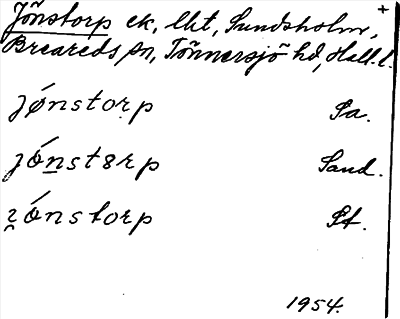 Jönstorp ek, lht, Sundsholm, +
Breareds sn, Tönnersjö hd, Hall. l.
jǿnstorp Sa.
jǿnstərp Sand.
ʒǿnstorp St.
1954.